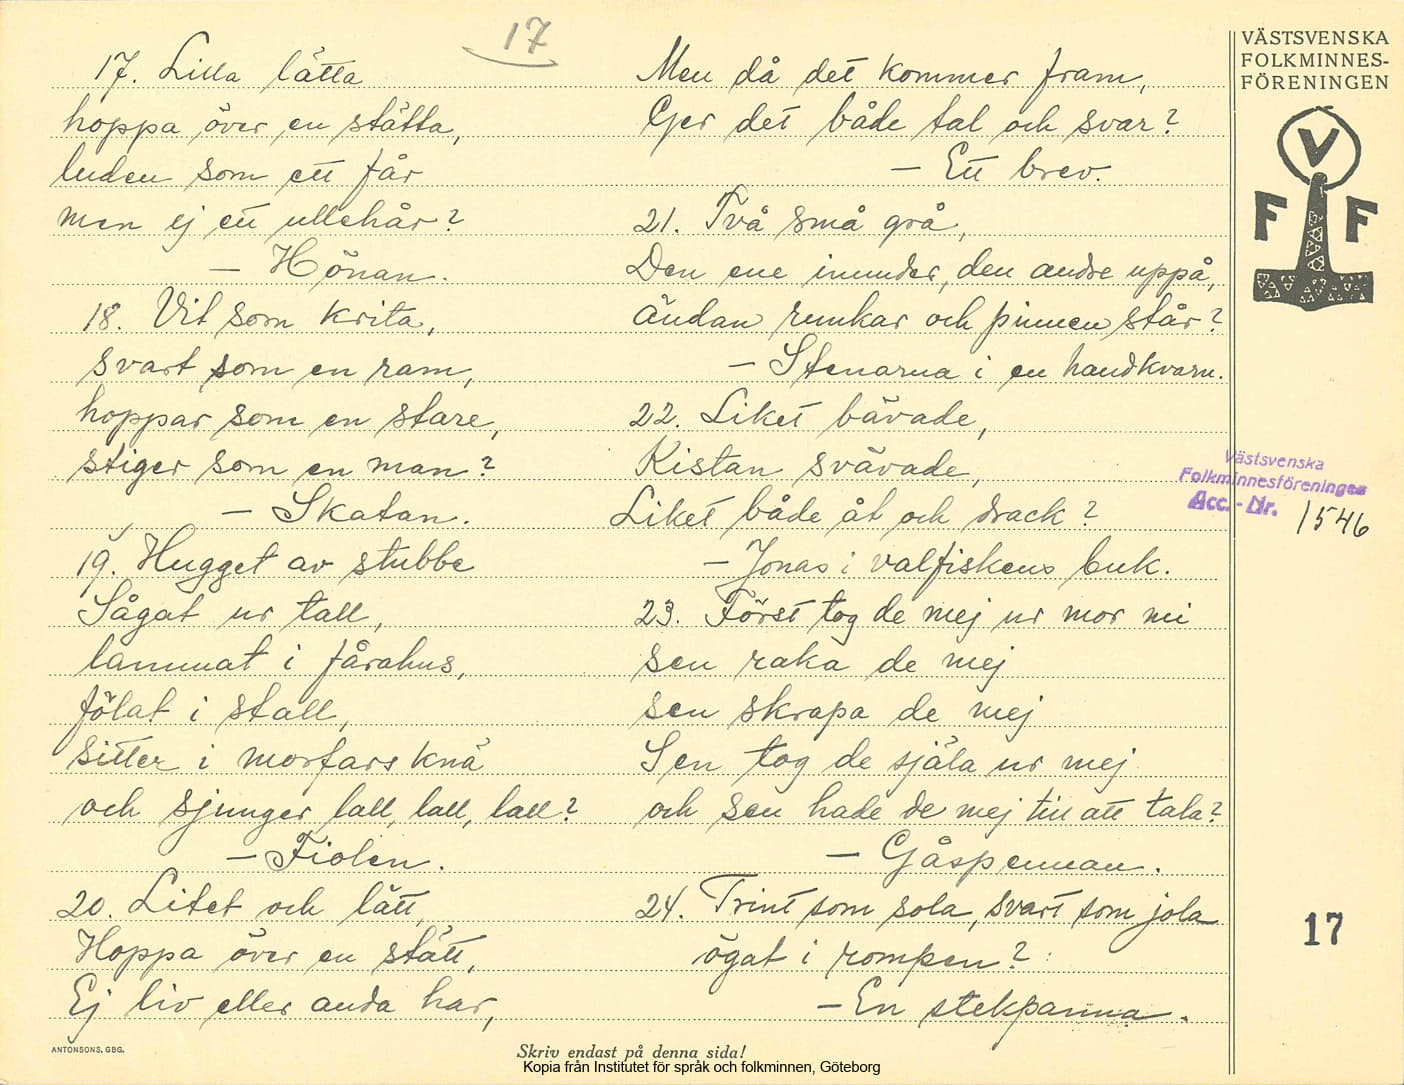 17
17. Lilla lätta
hoppa över en stätta,
luden som ett får
men ej ett ullehår?
— Hönan.
18. Vit som krita,
svart som en ram,
hoppar som en stare,
stiger som en man?
— Skatan.
19. Hugget av stubbe
Sågat ur tall,
lammat i fårahus,
fölat i stall,
sitter i morfars knä
och sjunger lall, lall, lall?
— Fiolen.
20. Litet och lätt,
Hoppa över en stätt,
Ej liv eller anda har,
Men då det kommer fram,
Ger det både tal och svar?
— Ett brev.
21. Två små grå,
Den ene inunder, den andre uppå,
ändan runkar och pinnen står?
— Stenarna i en handkvarn.
22. Liket bävade,
Kistan svävade,
Liket både åt och drack?
— Jonas i valfiskens buk.
23. Först tog de mej ur mor mi
sen raka de mej
sen skrapa de mej
Sen tog de själa ur mej
och sen hade de mej till att tala?
— Gåspennan.
24. Trint som sola, svart som jola
ögat i rompen?
— En stekpanna.
VÄSTSVENSKA
FOLKMINNES-
FÖRENINGEN
V
F F
Västsvenska
Folkminnesföreningen
Acc.-Nr. 1546
17
ANTONSONS, GBG.
Skriv endast på denna sida!
Kopia från Institutet för språk och folkminnen, Göteborg